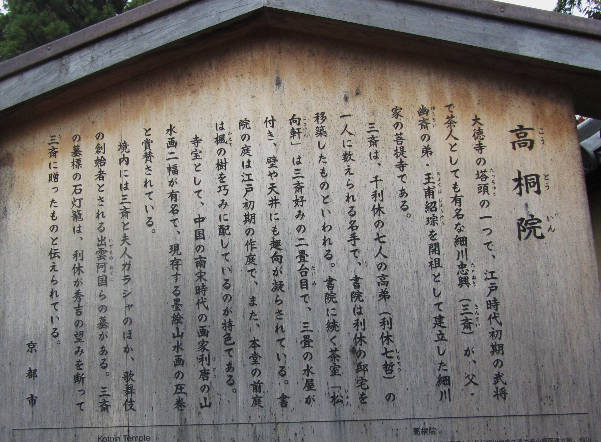 高桐院
こうとういん
大徳寺の塔頭の一つで、江戸時代初期の武将
で茶人としても有名な細川忠興（三斎）が、父・
幽斎の弟・玉甫紹琮を開祖として建立した細川
家の菩提寺である。
三斎は、千利休の七人の高弟（利休七哲）の
一人に数えられる名手で、書院は利休の邸宅を
移築したものといわれる。書院に続く茶室「松
向軒」は三斎好みの二畳台目で、三畳の水屋が
付き、壁や天井にも趣向が凝らされている。書
院の庭は江戸初期の作庭で、また、本堂の前庭
は楓の樹を巧みに配しているのが特色である。
寺宝として、中国の南宋時代の画家利唐の山
水画二幅が有名で、現存する墨絵山水画の圧巻
と賞賛されている。
境内には三斎と夫人ガラシャのほか、歌舞伎
の創始者とされる出雲阿国らの墓がある。三斎
の墓標の石灯籠は、利休が秀吉の望みを断って
三斎に贈ったものと伝えられている。
京都市
Kotoin Temple